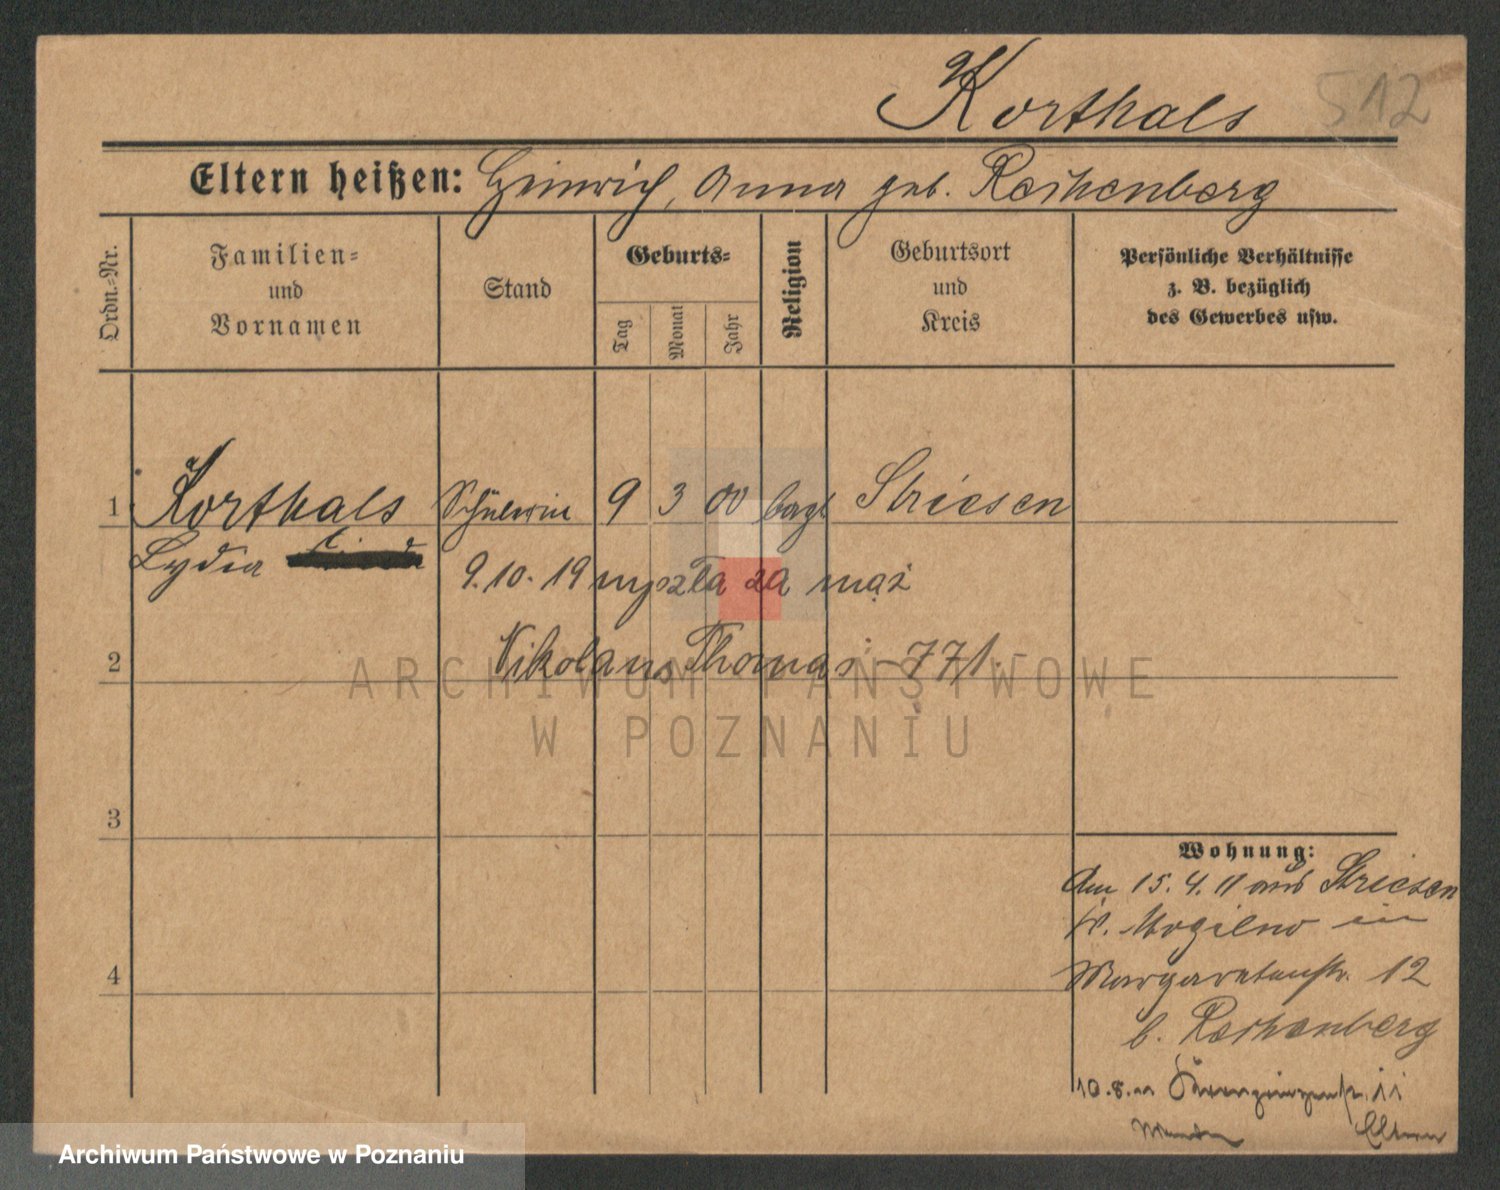 Korthals 512
Eltern heißen: Heinrich, Anna geb. Reichenberg
Ordn.-Nr.
Familien-
und
Vornamen
Stand
Geburts-
Tag
Monat
Jahr
Religion
Geburtsort
und
Kreis
Persönliche Verhältnisse
z. B. bezüglich
des Gewerbes usw.
1 Korthals Schülerin 9 3 00 Striesen
Lydia
9.10.19 wyszła za mąż
2 Nikolaus Thomas - 771.-
3
4
Wohnung:
Am 15.4.11 aus Striesen
Kr. Mogilno in
Margaretenstr. 12
b. Reichenberg
10.8. 11
Eltern
ARCHIWUM PAŃSTWOWE
W POZNANIU
Archiwum Państwowe w Poznaniu